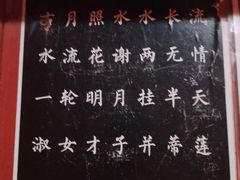 才月照水水长流
水流花谢两无情
一轮明月挂半天
淑女才子并蒂莲